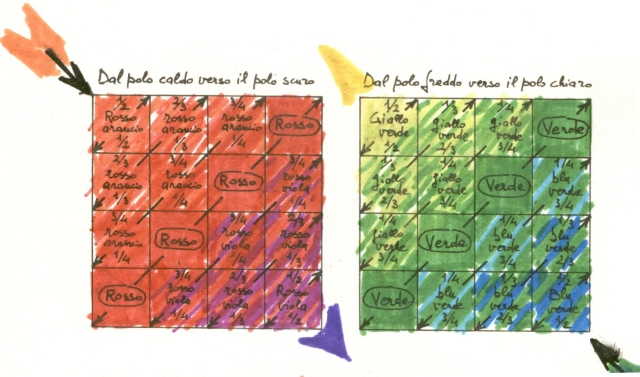 Dal polo caldo verso il polo scuro
1/2
Rosso
arancio
1/2
2/3
rosso
arancio
1/3
3/4
rosso
arancio
1/4
Rosso
2/3
rosso
arancio
1/3
3/4
rosso
arancio
1/4
Rosso
3/4
rosso
viola
1/4
3/4
rosso
arancio
1/4
Rosso
3/4
rosso
viola
1/4
2/3
rosso
viola
1/3
Rosso
3/4
rosso
viola
1/4
2/3
rosso
viola
1/3
1/2
Rosso
viola
1/2
Dal polo freddo verso il polo chiaro
1/2
Giallo
verde
1/2
1/3
giallo
verde
2/3
1/4
giallo
verde
3/4
Verde
1/3
giallo
verde
2/3
1/4
giallo
verde
3/4
Verde
1/4
blu
verde
3/4
1/4
giallo
verde
3/4
Verde
1/4
blu
verde
3/4
1/3
blu
verde
2/3
Verde
1/4
blu
verde
3/4
1/3
blu
verde
2/3
1/2
Blu
verde
1/2